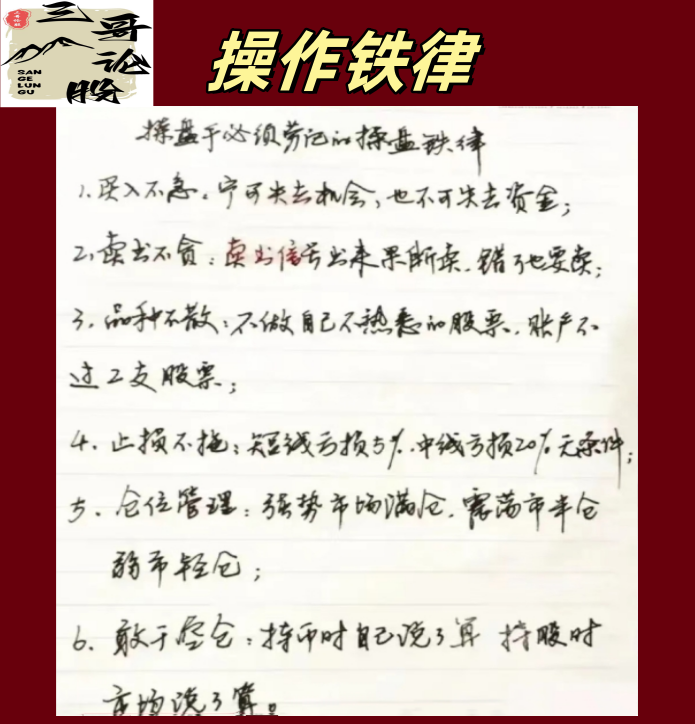 三哥论股
SAN
GE
LUN
GU
操作铁律
操盘手必须劳记的操盘铁律
1.买入不急。宁可失去机会,也不可失去资金;
2.卖出不贪:卖出信号出来果断卖.错了也要卖;
3.品种不散:不做自己不熟悉的股票.账户不
过2支股票;
4.止损不拖:短线亏损5%.中线亏损20%无条件;
5.仓位管理:强势市场满仓.震荡市半仓
弱市轻仓;
6.敢于空仓:持币时自己说了算 持股时
市场说了算。